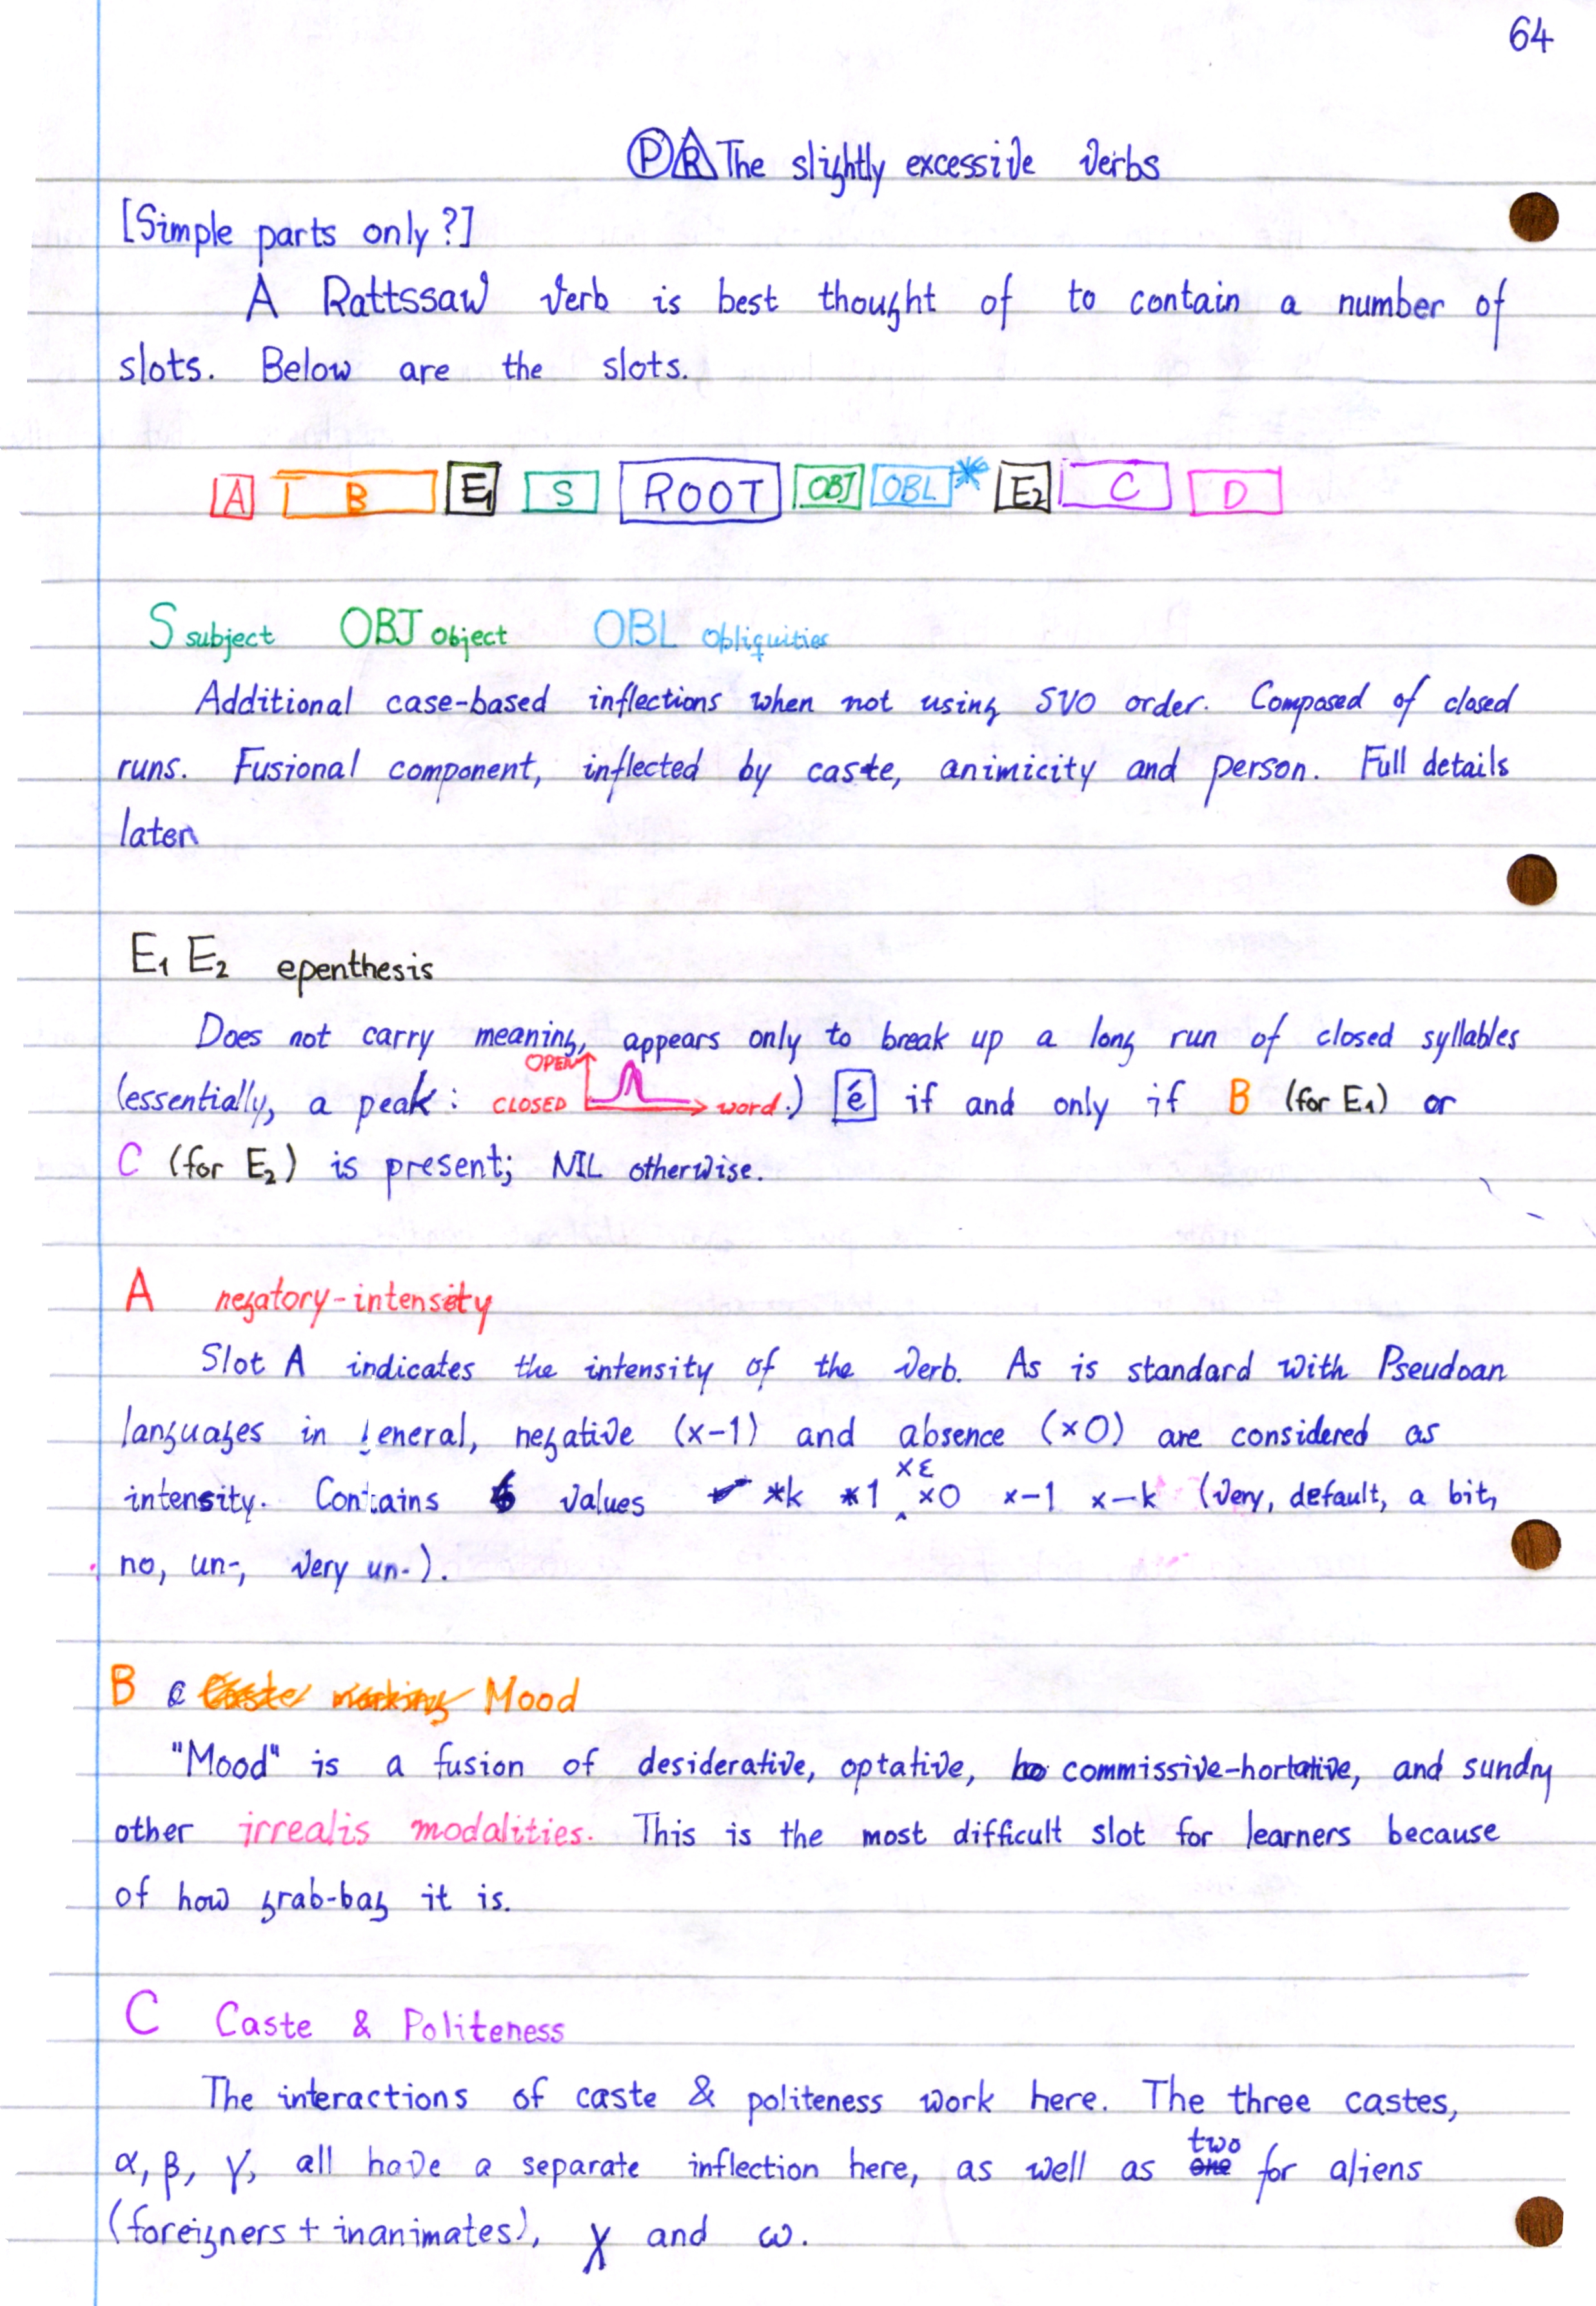 64
Ⓟ Ⓡ The slightly excessive verbs
[Simple parts only?]
A Rattssaw verb is best thought of to contain a number of
slots. Below are the slots.
A B E1 S ROOT OBJ OBL* E2 C D
S subject OBJ object OBL obliquities
Additional case-based inflections when not using SVO order. Composed of closed
runs. Fusional component, inflected by caste, animicity and person. Full details
later
E1 E2 epenthesis
Does not carry meaning, appears only to break up a long run of closed syllables
(essentially, a peak: OPEN CLOSED word.) é if and only if B (for E1) or
C (for E2) is present; NIL otherwise.
A negatory-intensity
Slot A indicates the intensity of the verb. As is standard with Pseudoan
languages in general, negative (x-1) and absence (x0) are considered as
intensity. Contains 6 values *k *1 xε x0 x-1 x-k (very, default, a bit,
no, un-, very un-).
B Caste marking Mood
"Mood" is a fusion of desiderative, optative, ho commissive-hortative, and sundry
other irrealis modalities. This is the most difficult slot for learners because
of how grab-bag it is.
C Caste & Politeness
The interactions of caste & politeness work here. The three castes,
α, β, γ, all have a separate inflection here, as well as one two for aliens
(foreigners + inanimates), χ and ω.